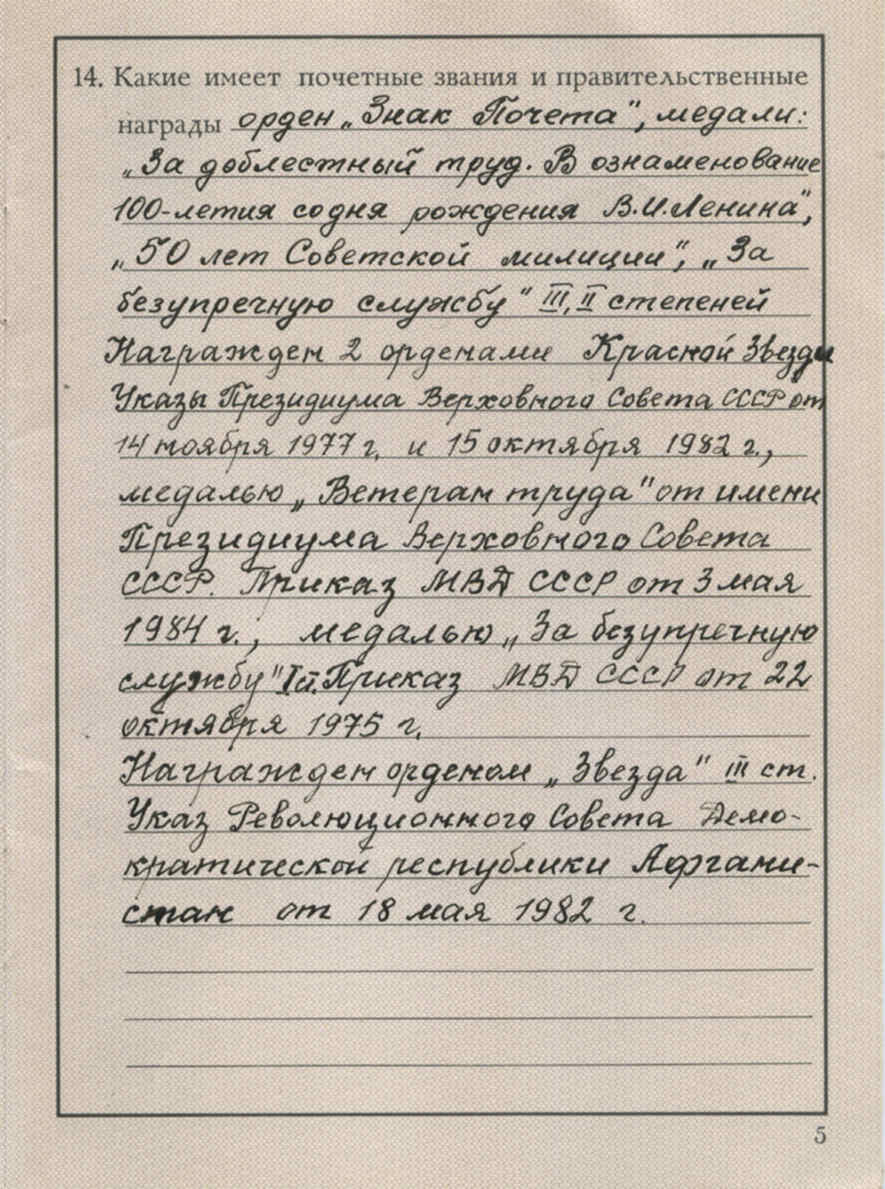 14. Какие имеет почетные звания и правительственные
награды орден „Знак Почета", медали:
„За доблестный труд. В ознаменование
100-летия со дня рождения В.И.Ленина",
„50 лет Советской милиции", „За
безупречную службу" III, II степеней
Награжден 2 орденами Красной Звезды
Указы Президиума Верховного Совета СССР от
14 ноября 1977 г. и 15 октября 1982 г.,
медалью „Ветеран труда" от имени
Президиума Верховного Совета
СССР. Приказ МВД СССР от 3 мая
1984 г., медалью „За безупречную
службу" I ст. Приказ МВД СССР от 22
октября 1975 г.
Награжден орденом „Звезда" III ст.
Указ Революционного Совета Демо-
кратической республики Афгани-
стан от 18 мая 1982 г.
5